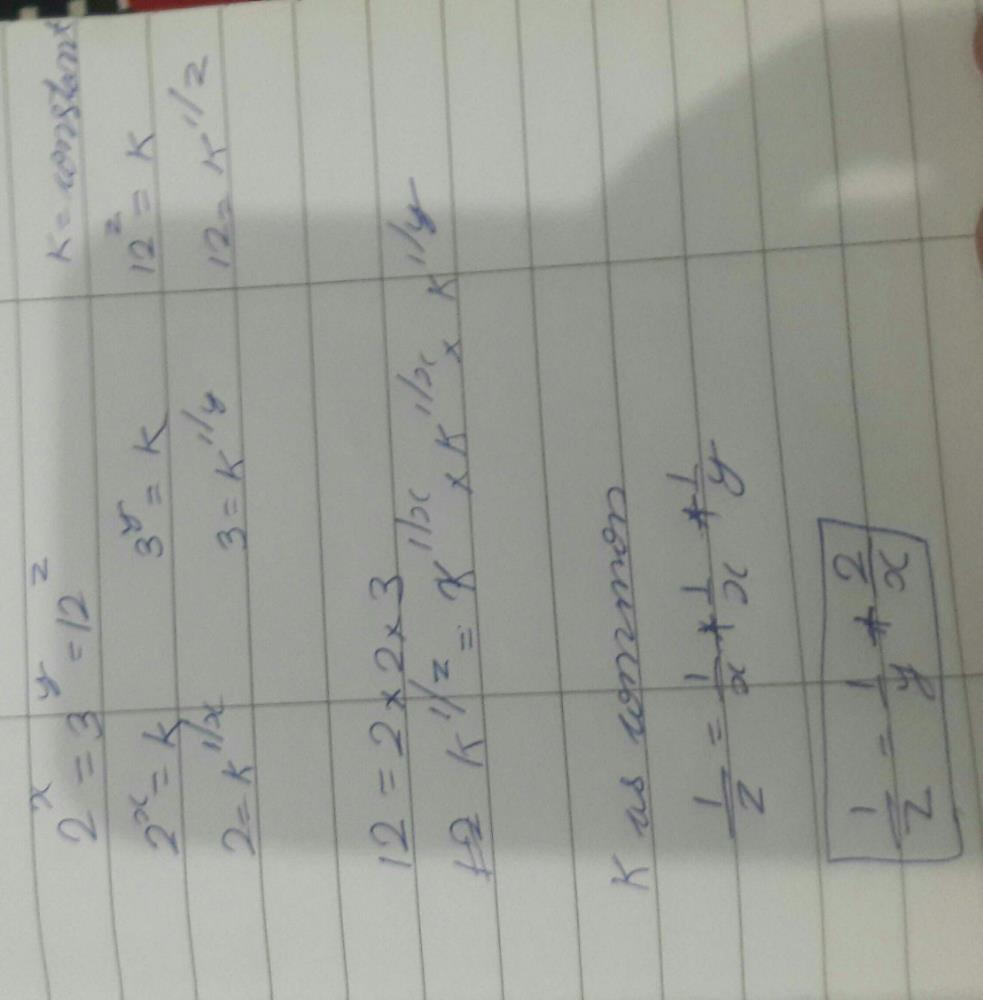 2^x = 3^y = 12^z K = constant
2^x = k 3^y = k 12^z = k
2 = k^1/x 3 = k^1/y 12 = k^1/z
12 = 2 × 2 × 3
12 k^1/z = k^1/x × k^1/x × k^1/y
K as common
1/z = 1/x + 1/x + 1/y
1/z = 1/y + 2/x